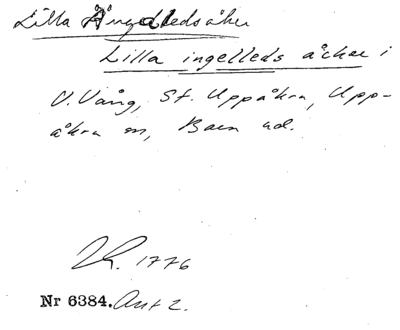 Lilla Ängelledsåker
Lilla ingelleds åckar i
V. Vång, St. Uppåkra, Upp-
åkra sn, Bara hd.
1776
Nr 6384. Ant 2.